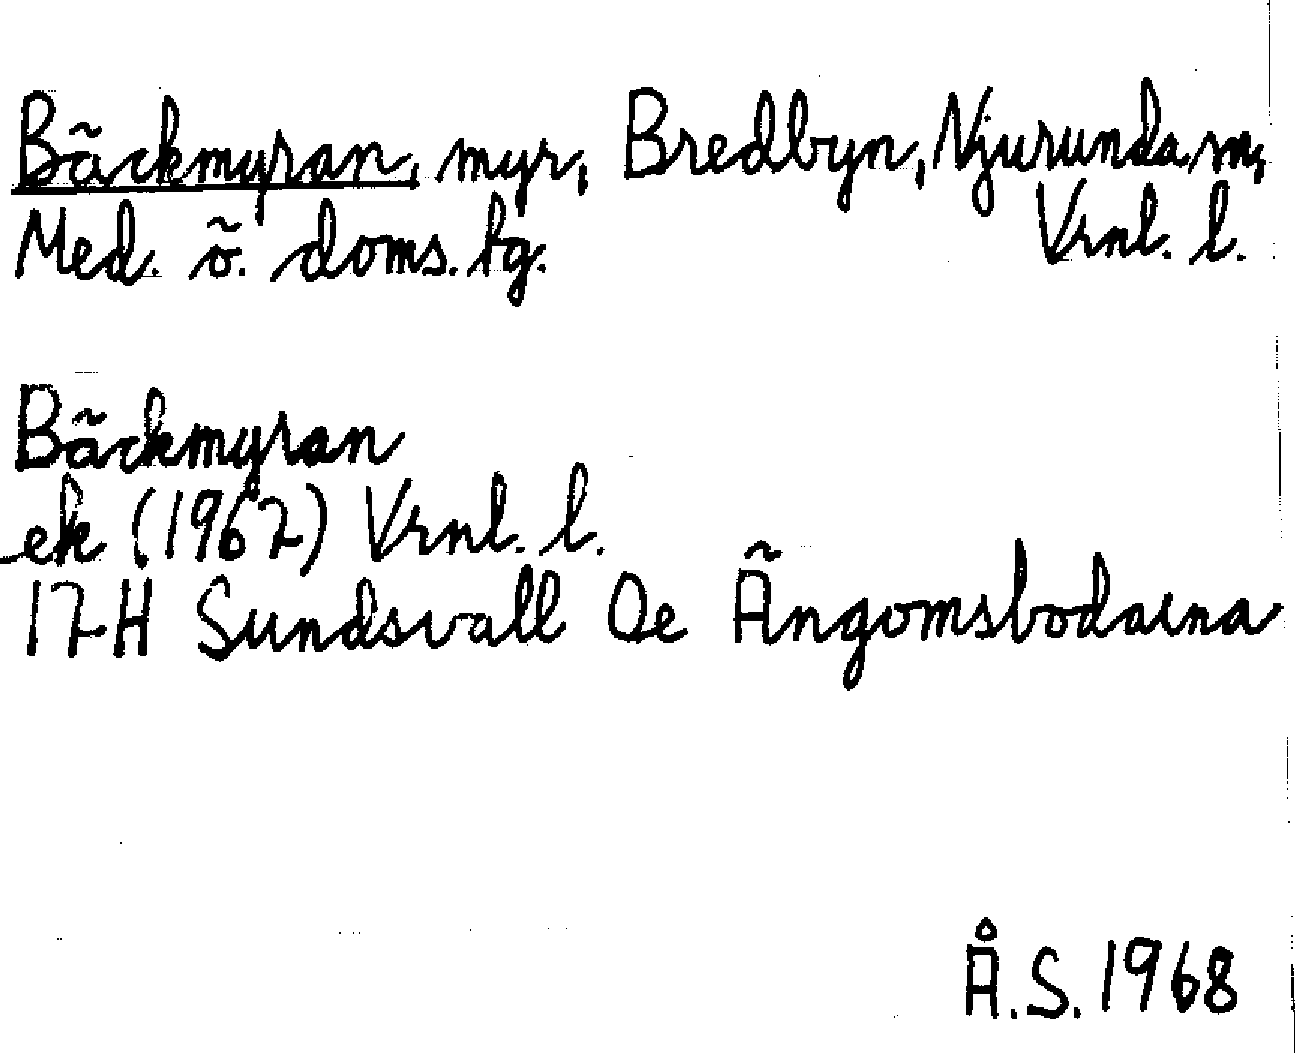 Bäckmyran, myr, Bredbyn, Njurunda sn,
Med. ö. doms. tg. Vrnl. l.
Bäckmyran
ek (1962) Vrnl. l.
17H Sundsvall Oe Ängomsbodarna
Å.S. 1968